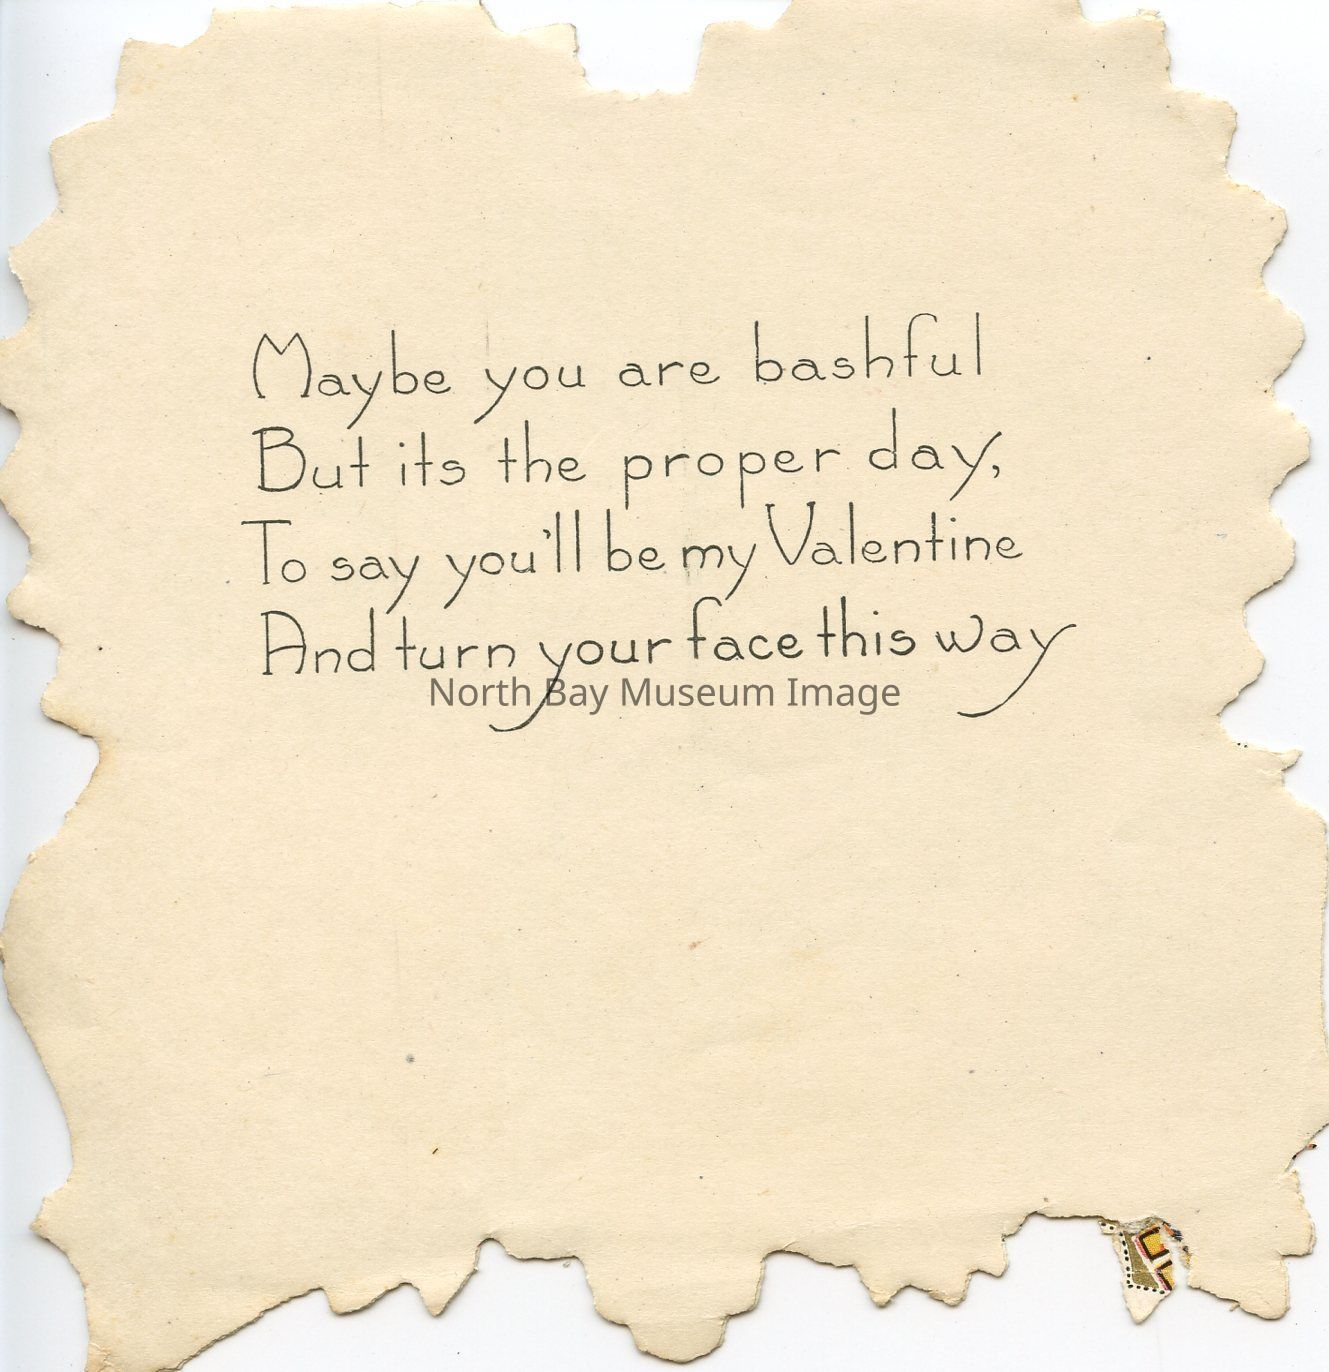 Maybe you are bashful
But its the proper day,
To say you'll be my Valentine
And turn your face this way
North Bay Museum Image